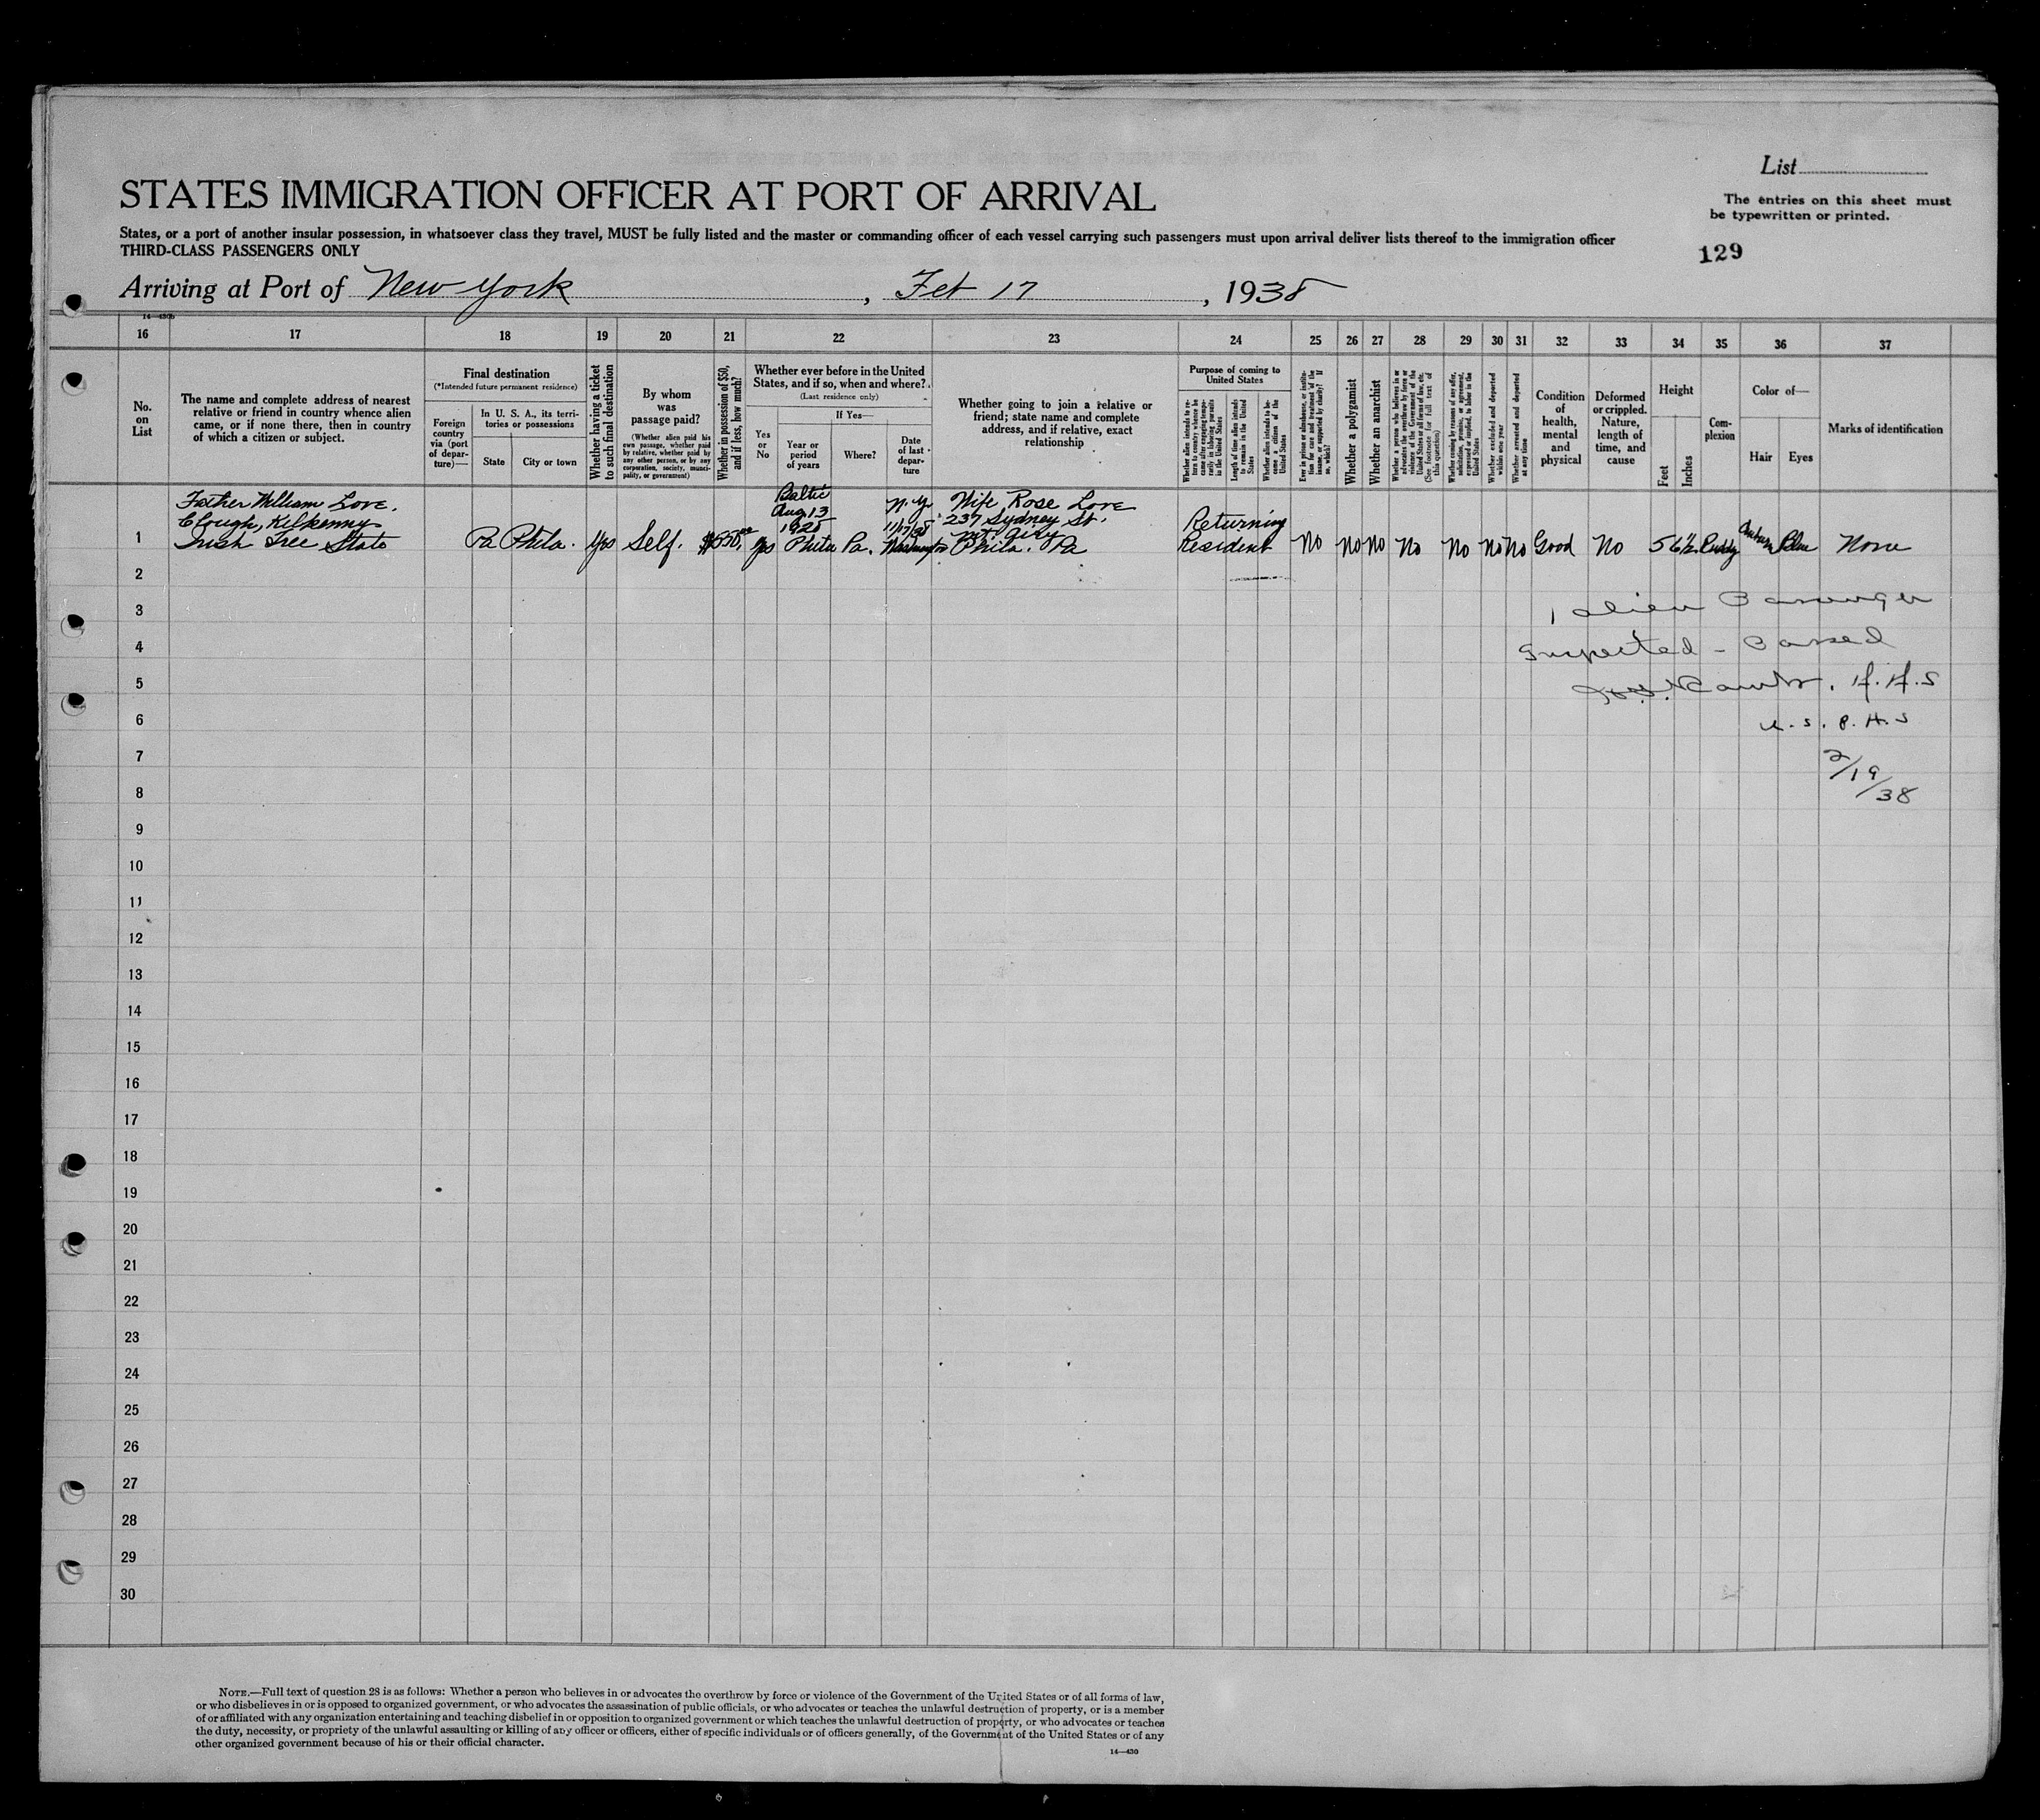 List
The entries on this sheet must
be typewritten or printed.
129
STATES IMMIGRATION OFFICER AT PORT OF ARRIVAL
States, or a port of another insular possession, in whatsoever class they travel, MUST be fully listed and the master or commanding officer of each vessel carrying such passengers must upon arrival deliver lists thereof to the immigration officer
THIRD-CLASS PASSENGERS ONLY
Arriving at Port of New York, Feb 17, 1938
14—430b
16 17 18 19 20 21 22 23 24 25 26 27 28 29 30 31 32 33 34 35 36 37
No.
on
List
The name and complete address of nearest
relative or friend in country whence alien
came, or if none there, then in country
of which a citizen or subject.
Final destination
(*Intended future permanent residence)
Foreign
country
via (port
of depar-
ture)—
In U. S. A., its terri-
tories or possessions
State City or town
Whether having a ticket
to such final destination
By whom
was
passage paid?
(Whether alien paid his
own passage, whether paid
by relative, whether paid by
any other person, or by any
corporation, society, munici-
pality, or government)
Whether in possession of $50,
and if less, how much?
Whether ever before in the United
States, and if so, when and where?
(Last residence only)
Yes
or
No
If Yes—
Year or
period
of years
Where?
Date
of last
depar-
ture
Whether going to join a relative or
friend; state name and complete
address, and if relative, exact
relationship
Purpose of coming to
United States
Whether alien intends to re-
turn to country whence he
came after engaging tempo-
rarily in laboring pursuits
in the United States
Length of time alien intends
to remain in the United
States
Whether alien intends to be-
come a citizen of the
United States
Ever in prison or almshouse, or institu-
tion for care and treatment of the
insane, or supported by charity? If
so, which?
Whether a polygamist
Whether an anarchist
Whether a person who believes in or
advocates the overthrow by force or
violence of the Government of the
United States or all forms of law, etc.
(See footnote for full text of
this question)
Whether coming by reasons of any offer,
solicitation, promise, or agreement,
expressed or implied, to labor in the
United States
Whether excluded and deported
within one year
Whether arrested and deported
at any time
Condition
of
health,
mental
and
physical
Deformed
or crippled.
Nature,
length of
time, and
cause
Height
Feet
Inches
Com-
plexion
Color of—
Hair Eyes
Marks of identification
Father William Love.
Clough, Kilkenny
Irish Free State
1 Pa Phila. Yes Self. Yes
Baltic
Aug 13
1928
Phila Pa.
N.Y.
Washington
Wife Rose Love
237 Sydney St.
Mt Airy
Phila. Pa
Returning
Resident
No No No No No No No Good No 5 6½ Ruddy Auburn Blue None
2
3
1 alien Passenger
4
Inspected - Passed
5
6
U.S.P.H.S
7
2/19/38
8
9
10
11
12
13
14
15
16
17
18
19
20
21
22
23
24
25
26
27
28
29
30
NOTE.—Full text of question 28 is as follows: Whether a person who believes in or advocates the overthrow by force or violence of the Government of the United States or of all forms of law,
or who disbelieves in or is opposed to organized government, or who advocates the assassination of public officials, or who advocates or teaches the unlawful destruction of property, or is a member
of or affiliated with any organization entertaining and teaching disbelief in or opposition to organized government or which teaches the unlawful destruction of property, or who advocates or teaches
the duty, necessity, or propriety of the unlawful assaulting or killing of any officer or officers, either of specific individuals or of officers generally, of the Government of the United States or of any
other organized government because of his or their official character.
14—430